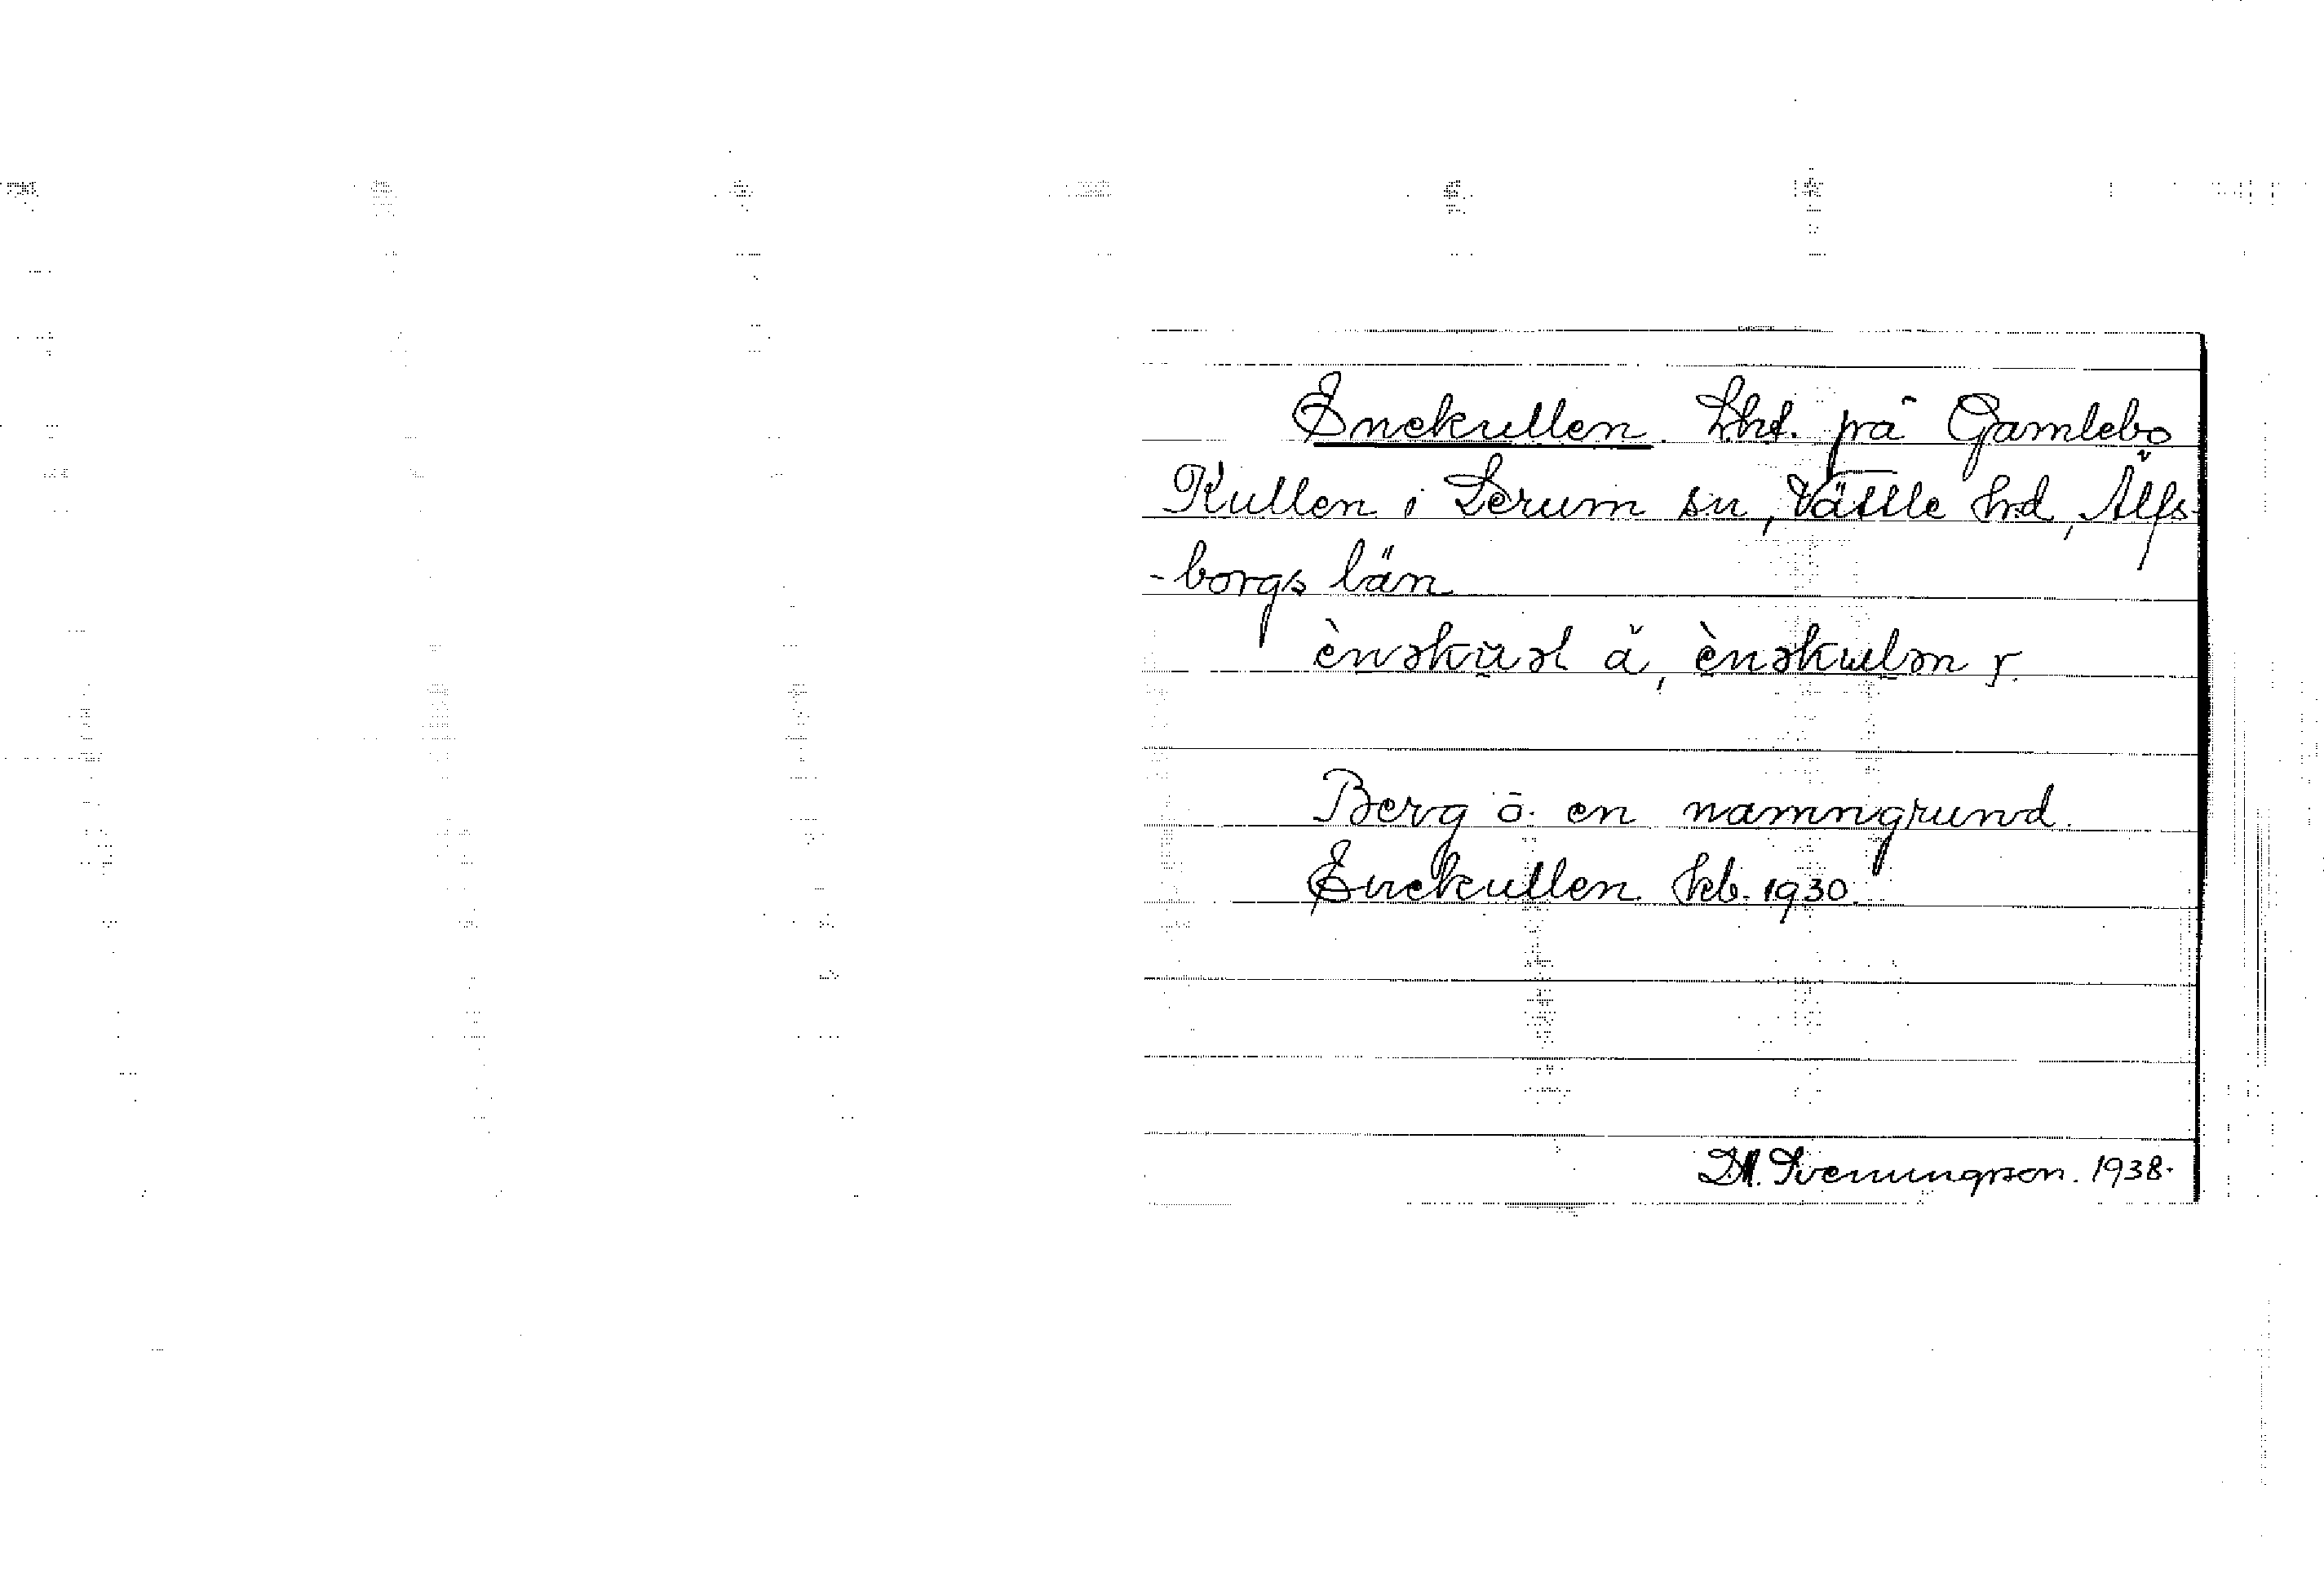 Enekullen. Lht. på Gamlebo
Kullen i Lerum sn, Vättle hrd, Älfs-
-borgs län
ènəkuəl ä, ènəkulən y.
Berg o. en namngrund.
Enekullen. kb. 1930.
D.A. Svenungson. 1938.